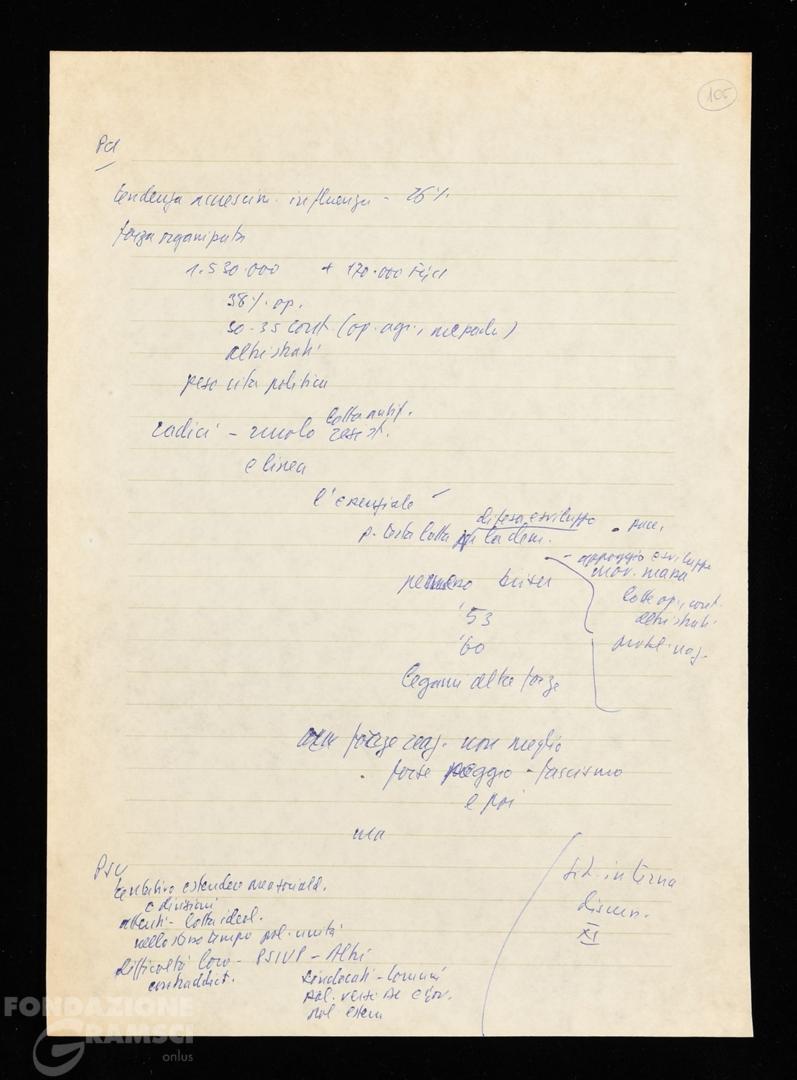 105
Pci
tendenza accrescim. influenza - 26%
forza organizzata
1.530.000 + 170.000 Fgci
38% op.
30-35 cont. (op. agr., mezzadri)
altri strati
peso vita politica
lotta antif.
radici - ruolo resist.
e linea
l'essenziale
difesa e sviluppo • pace,
p. testa lotta per la dem.
- appoggio e sviluppo
mov. massa
lotte op., cont.
altri strati
'53
'60
probl. naz.
legami altre forze
forze reaz. non meglio
forse peggio - fascismo
e poi
ma
PSU
tentativo estendere
e divisioni
attenti - lotta ideol.
nello stesso tempo pol. unità
difficoltà loro - PSIUP - Altri
contraddict.
Sindacati - Comuni
pol. verso DC e gov.
pol. estera
sit. interna
discuss.
XI
FONDAZIONE
GRAMSCI
onlus